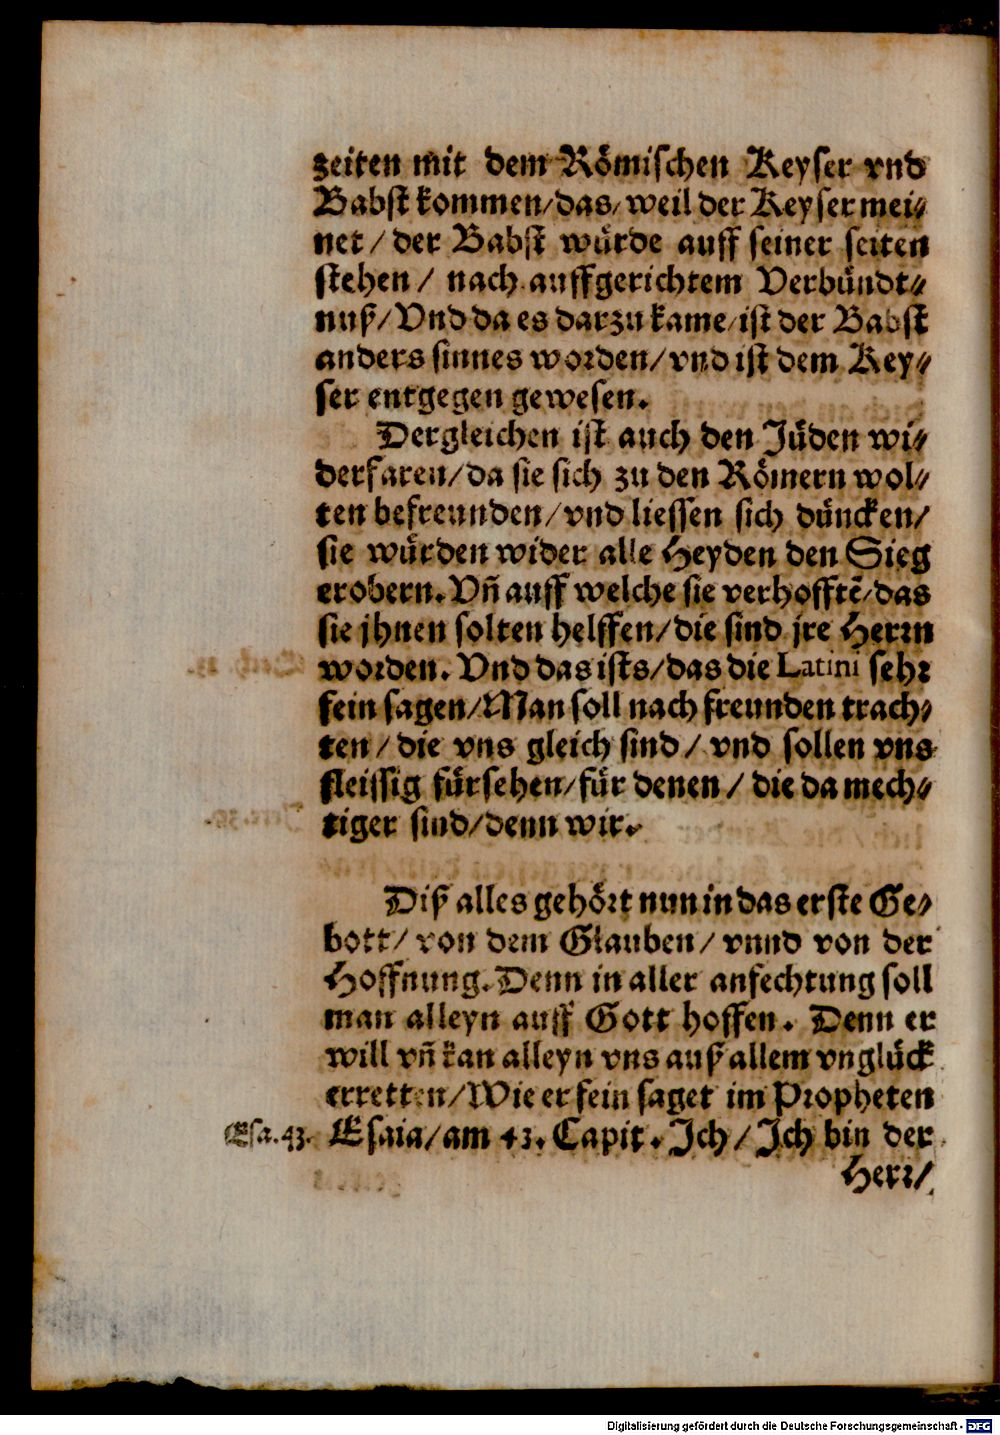 zeiten mit dem Römischen Keyser vnd
Babst kommen/das/weil der Keyser mei⸗
net / der Babst würde auff seiner seiten
stehen / nach auffgerichtem Verbündt⸗
nuß/Vnd da es darzu kame/ist der Babst
anders sinnes worden/vnd ist dem Key⸗
ser entgegen gewesen.
Dergleichen ist auch den Jüden wi⸗
derfaren/da sie sich zu den Römern wol⸗
ten befreunden/vnd liessen sich düncken/
sie würden wider alle Heyden den Sieg
erobern. Vñ auff welche sie verhofftẽ/das
sie jhnen solten helffen/die sind jre Herrn
worden. Vnd das ists/das die Latini sehr
fein sagen/Man soll nach freunden trach⸗
ten / die vns gleich sind / vnd sollen vns
fleissig fürsehen/für denen / die da mech⸗
tiger sind/denn wir.
Diß alles gehört nun in das erste Ge⸗
bott/ von dem Glauben/ vnnd von der
Hoffnung. Denn in aller anfechtung soll
man alleyn auff Gott hoffen. Denn er
will vñ kan alleyn vns auß allem vnglück
erretten/Wie er fein saget im Propheten
Esa. 43. Esaia/am 43. Capit. Jch/ Jch bin der
Herr/
Digitalisierung gefördert durch die Deutsche Forschungsgemeinschaft - DFG